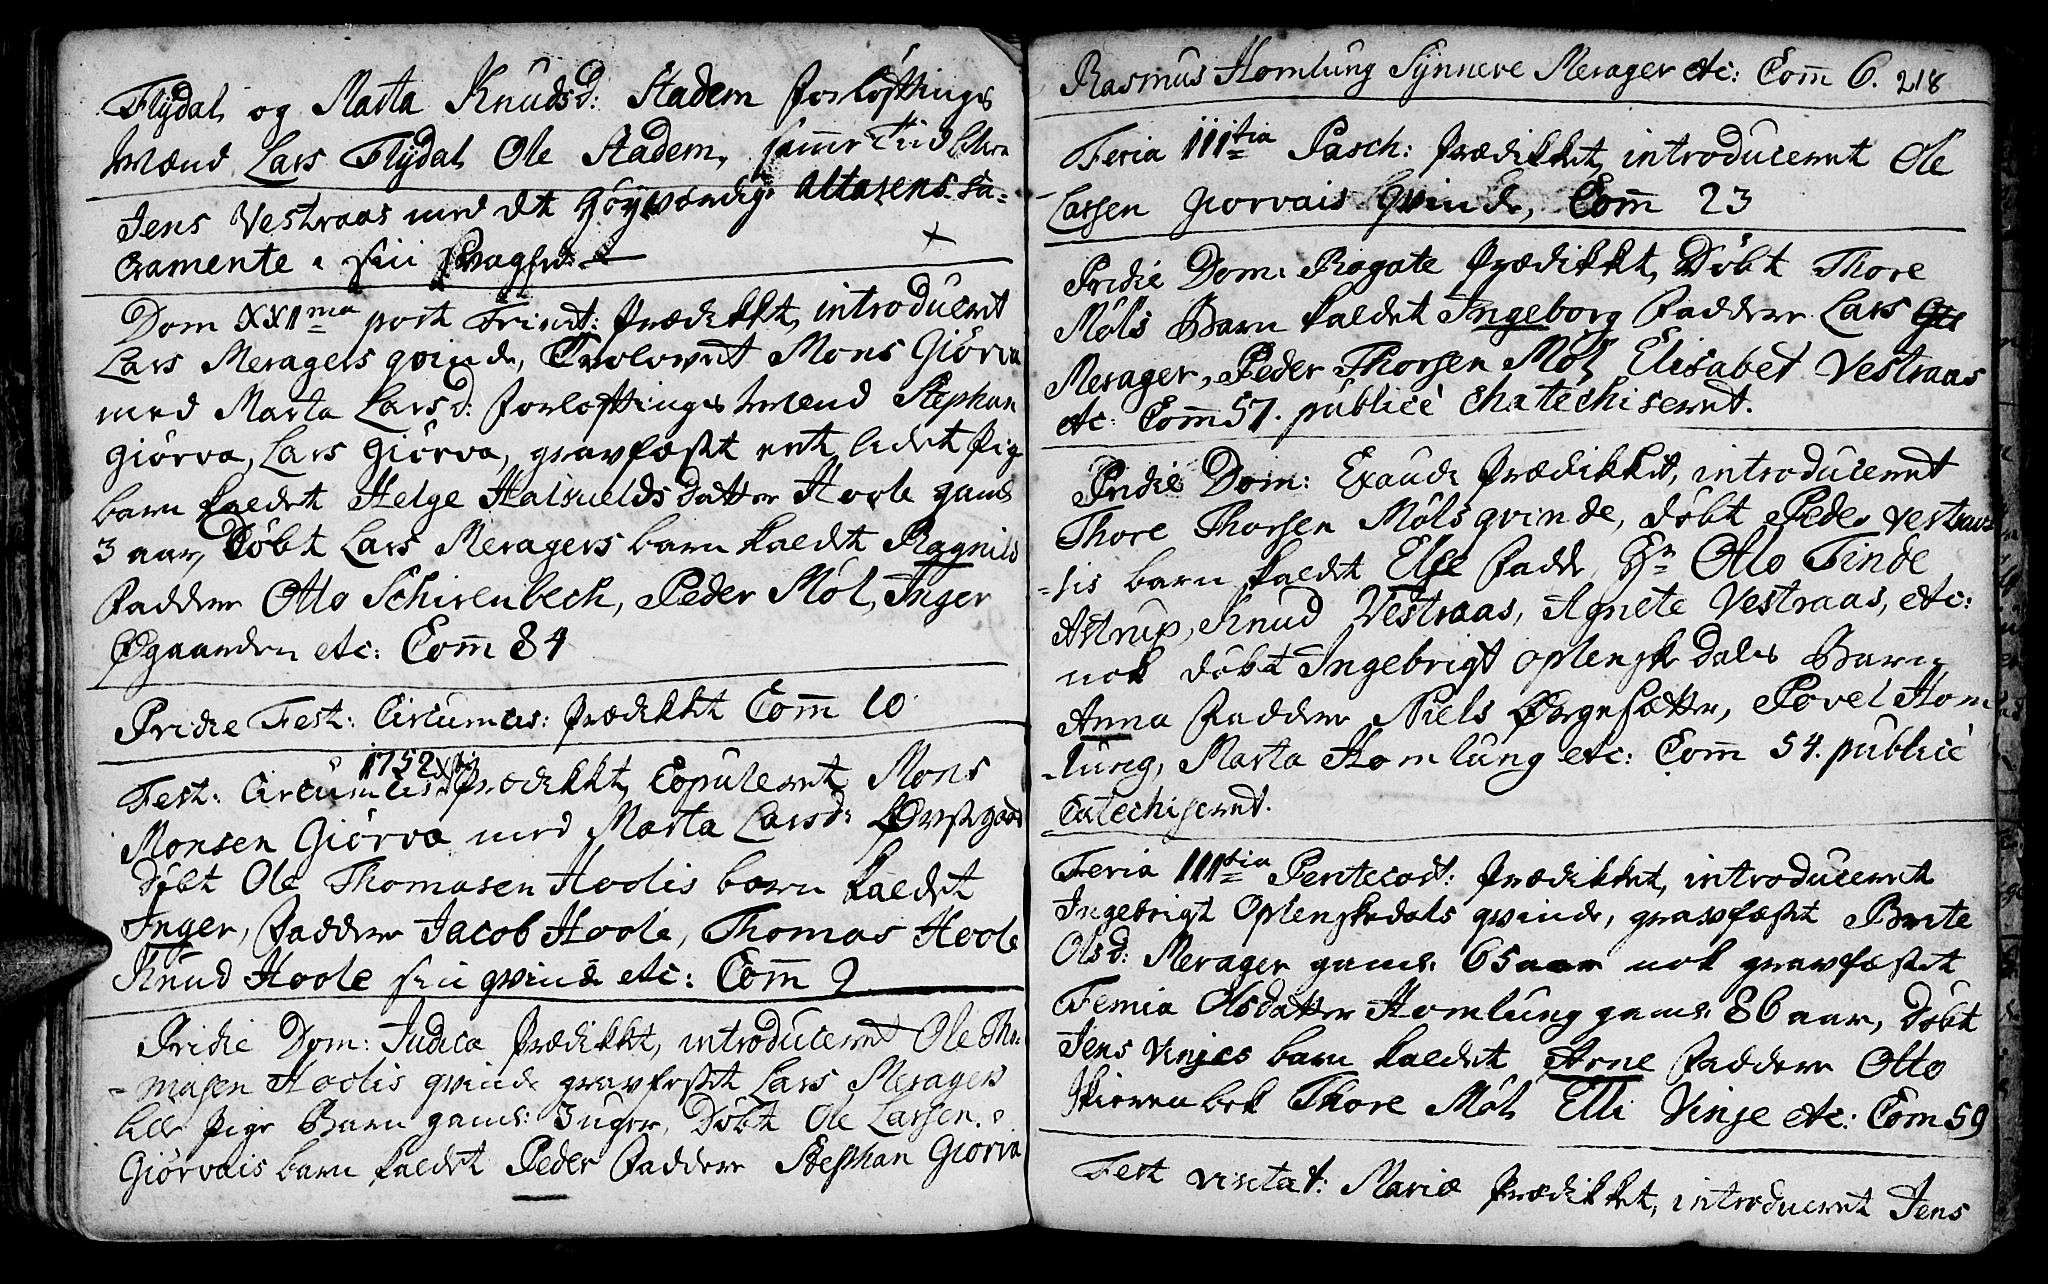 Flydal og Marta Knudsd: Stadem forløftings
Mænd Lars Flydal Ole Stadem, samme Tiid
Jens Vestraas med det høyværdige Altarens Sa=
cramente i sin Svaghed
Dom XXIma post Trinit: prædikket, introduceret
Lars Meragers qvinde, Trolovet Mons Giörva
med Marta Larsd: forløftings Mænd Stephan
Giörva, Lars Giörva, gravfæstet et lidet pige
barn kaldet Helge Halsuelds datter Hoole gaml
3 aar, Döbt Lars Meragers barn kaldet Ragnild
Faddere Otto Schirenbech, Peder Möl, Inger
Øgaarden etc: Com̄ 84
Pridie Fest: Circumcis: prædikket Com̄ 10
1752
Fest: Circumcis: prædikket, Copuleret Mons
Monsen Giörva med Marta Larsd:
Döbt Ole Thomasen Hoolis barn kaldet
Inger, Faddere Jacob Hoole, Thomas Hoole
Knud Hoole sin qvinde etc: Com̄ 9
Pridie Dom: Judica prædikket, introduceret Ole Tho=
=masen Hoolis qvinde gravfæstet Lars Meragers
lille pige Barn gaml: 3 uger, Döbt Ole Larsen
Giörvais barn kaldet Peder Faddere Stephan Giorva
Rasmus Homlung Synneve Merager etc: Com̄ 6. 218
Feria IIItia Pasch: prædikket, introduceret Ole
Larsen Giorvais Qvinde, Com̄ 23
Pridie Dom: Rogate prædikket, Döbt Thore
Möls Barn kaldet Ingeborg Faddere Lars
Merager, Peder Thorsen Möl Elisabet Vestraas
etc: Com̄ 57. publicè Chatechiseret.
Pridie Dom: Exaudi prædikket, introduceret
Thore Thorsen Möls qvinde, döbt Peder Vestraas
=sis barn kaldet Else Fadde Hr Otto Finde
Astrup, Knud Vestraas, Agnete Vestraas, etc:
nok döbt Ingebrigt Oplenskedals Barn
Anna Faddere Niels Ørgesætter, Povel Hom
=lung, Marta Homlung etc: Com̄ 54. publicè
Catechiseret.
Feria IIItia Pentecost: prædikket, introduceret
Ingebrigt Oplenskedals qvinde, gravfæstet Brite
Olsd: Merager gaml: 65 aar nok gravfæstet
Femia Olsdatter Homlung gaml: 86 aar, Döbt
Jens Vinjes barn kaldet Arne Faddere Otto
Skierenbek Thore Möl Elli Vinje etc: Com 59
Fest Visitat: Mariæ prædikket, introduceret Jens